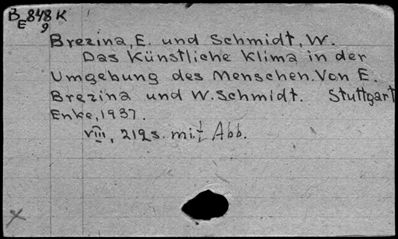 B 848 K
E 9
Brezina, E. und Schmidt, W.
Das Künstliche Klima in der
Umgebung des Menschen. Von E.
Brezina und W. Schmidt. Stuttgart
Enke, 1937.
VIII, 212 s. mit Abb.